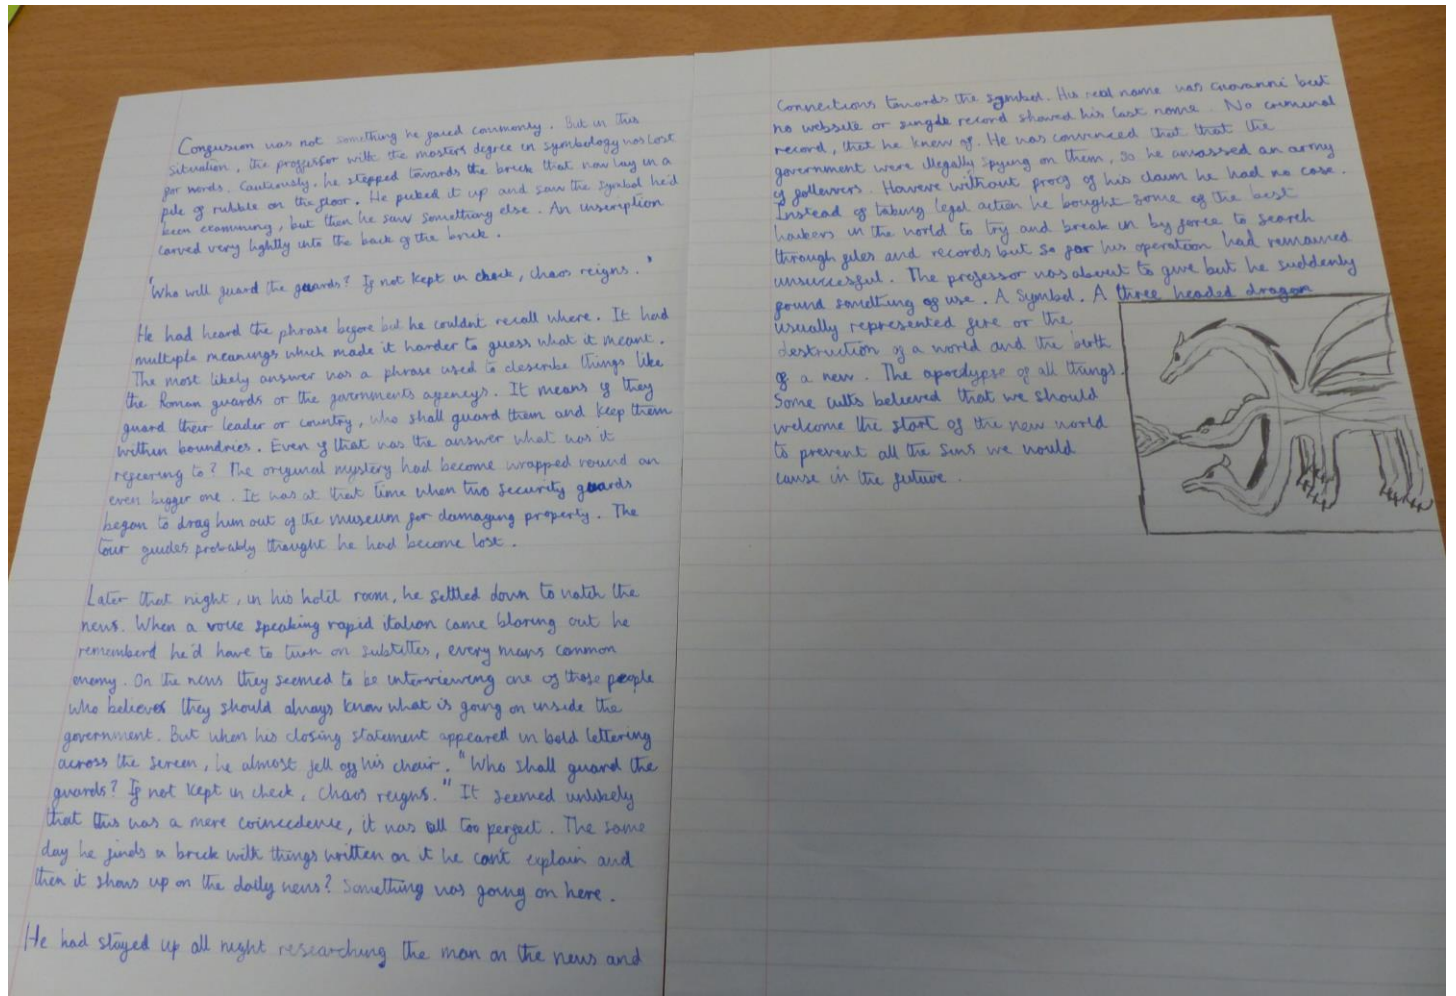 Confusion was not something he faced commonly. But in this
situation, the proffessor with the masters degree in symbology was lost
for words. Cautiously, he stepped towards the brick that now lay in a
pile of rubble on the floor. He picked it up and saw the symbol he'd
been examining, but then he saw something else. An inscription
carved very lightly into the back of the brick.
"Who will guard the guards? If not kept in check, chaos reigns."
He had heard the phrase before but he couldnt recall where. It had
multiple meanings which made it harder to guess what it meant.
The most likely answer was a phrase used to describe things like
the Roman guards or the governments agencys. It means if they
guard their leader or country, who shall guard them and keep them
within boundries. Even if that was the answer what was it
refeering to? The original mystery had become wrapped round an
even bigger one. It was at that time when two security guards
began to drag him out of the museum for damaging property. The
tour guides probably thought he had become lost.
Later that night, in his hotel room, he settled down to watch the
news. When a voice speaking rapid italian came blaring out he
rememberd he'd have to turn on subtitles, every mans common
enemy. On the news they seemed to be interviewing one of those people
who believes they should always know what is going on inside the
government. But when his closing statement appeared in bold lettering
across the screen, he almost fell off his chair. "Who shall guard the
guards? If not kept in check, chaos reigns." It seemed unlikely
that this was a mere coincedence, it was all too perfect. The same
day he finds a brick with things written on it he cant explain and
then it shows up on the daily news? Something was going on here.
He had stayed up all night researching the man on the news and
Connections towards the symbol. His real name was Giovanni but
no website or single record showed his last name. No criminal
record, that he knew of. He was convinced that that the
government were illegally spying on them, so he amassed an army
of followers. Havere without proof of his claim he had no case.
Instead of taking legal action he bought some of the best
hackers in the world to try and break in by force to search
through files and records but so far his operation had remained
unsuccesful. The professor was about to give but he suddenly
found something of use. A symbol. A three headed dragon
usually represented fire or the
destruction of a world and the birth
of a new. The apocalypse of all things.
Some cults believed that we should
welcome the start of the new world
to prevent all the sins we would
cause in the future.